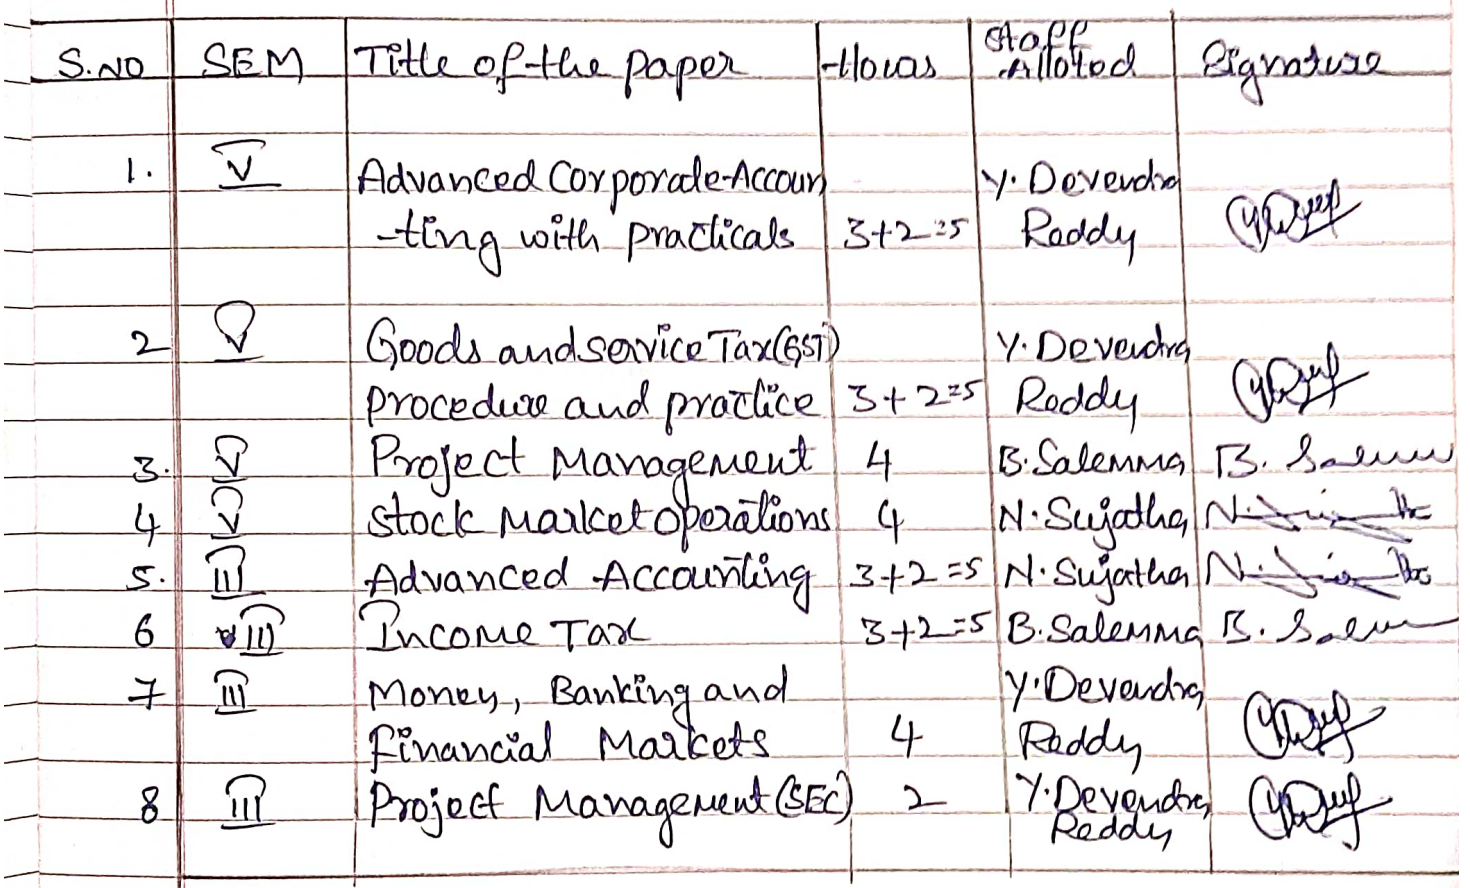 S.NO SEM Title of the paper Hours Staff Alloted Signature
1. V Advanced Corporate Accoun Y. Devendra
-ting with practicals 3+2=5 Reddy
2 V Goods and service Tax(GST) Y. Devendra
procedure and practice 3+2=5 Reddy
3. V Project Management 4 B. Salemma B. Salem
4 V Stock Market operations 4 N. Sujatha N.
5. III Advanced Accounting 3+2=5 N. Sujatha N.
6 III Income Tax 3+2=5 B. Salemma B. Salem
7 III Money, Banking and Y. Devendra
Financial Markets 4 Reddy
8 III Project Management (SEC) 2 Y. Devendra
Reddy